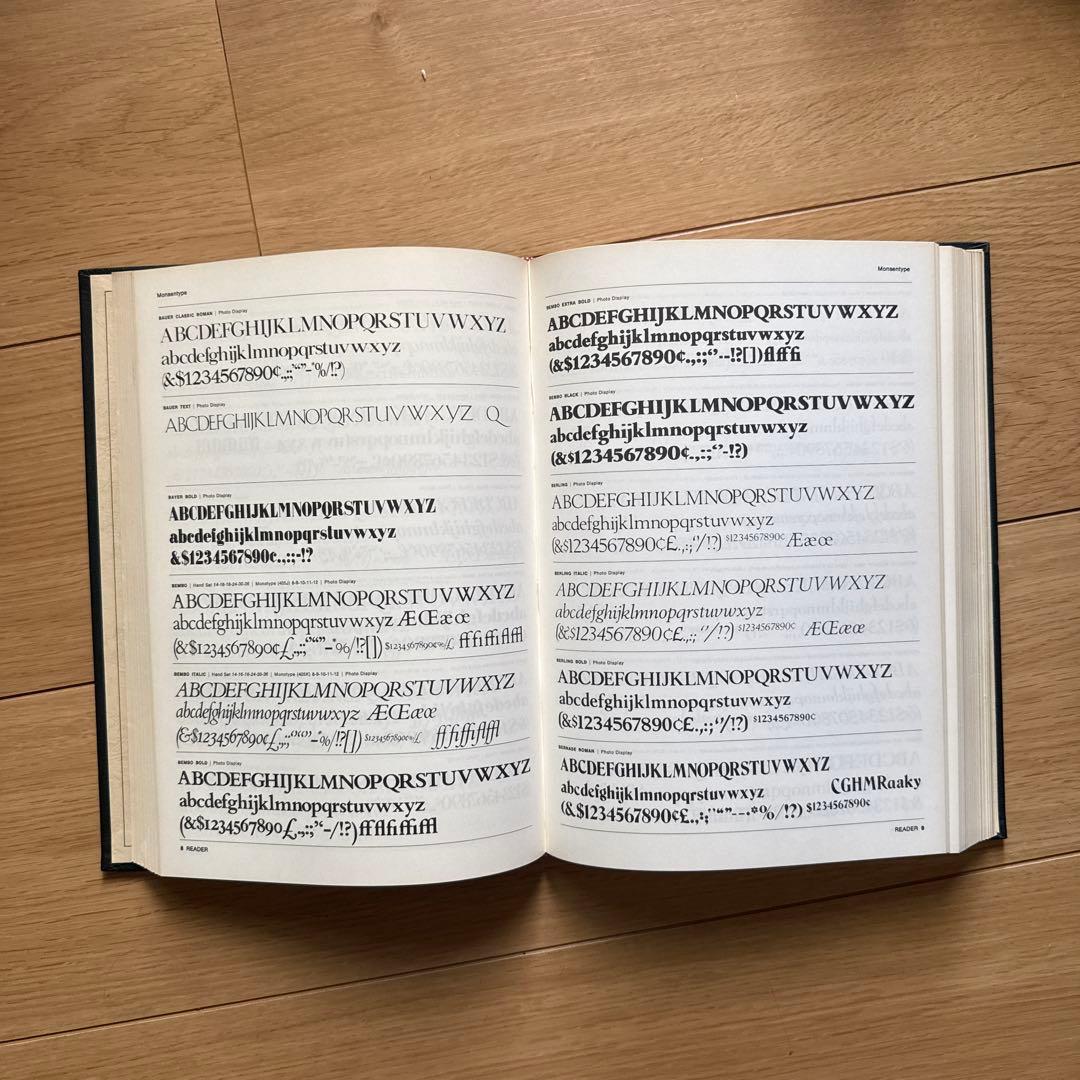 Monsentype
BAUER CLASSIC ROMAN | Photo Display
ABCDEFGHIJKLMNOPQRSTUVWXYZ
abcdefghijklmnopqrstuvwxyz
(&$1234567890¢.,:;“”-*%/!?)
BAUER TEXT | Photo Display
ABCDEFGHIJKLMNOPQRSTUVWXYZ Q
BAYER BOLD | Photo Display
ABCDEFGHIJKLMNOPQRSTUVWXYZ
abcdefghijklmnopqrstuvwxyz
&$1234567890¢.,:;-!?
BEMBO | Hand Set 14-16-18-24-30-36 | Monotype (405J) 8-9-10-11-12 | Photo Display
ABCDEFGHIJKLMNOPQRSTUVWXYZ
abcdefghijklmnopqrstuvwxyz ÆŒæœ
(&$1234567890¢£.,:;“”-*%/!?[]) $1234567890¢%/£ fffiffiflffl
BEMBO ITALIC | Hand Set 14-16-18-24-30-36 | Monotype (405K) 8-9-10-11-12 | Photo Display
ABCDEFGHIJKLMNOPQRSTUVWXYZ
abcdefghijklmnopqrstuvwxyz ÆŒæœ
(&$1234567890¢£.,:;“”-*%/!?[]) $1234567890¢%/£ fffiffiflffl
BEMBO BOLD | Photo Display
ABCDEFGHIJKLMNOPQRSTUVWXYZ
abcdefghijklmnopqrstuvwxyz
(&$1234567890£.,:;‘‘-/!?)ffflfiffiffl
8 READER
Monsentype
BEMBO EXTRA BOLD | Photo Display
ABCDEFGHIJKLMNOPQRSTUVWXYZ
abcdefghijklmnopqrstuvwxyz
(&$1234567890¢.,:;‘’--!?[])flfffi
BEMBO BLACK | Photo Display
ABCDEFGHIJKLMNOPQRSTUVWXYZ
abcdefghijklmnopqrstuvwxyz
(&$1234567890¢.,:;‘’-!?)
BERLING | Photo Display
ABCDEFGHIJKLMNOPQRSTUVWXYZ
abcdefghijklmnopqrstuvwxyz
(&$1234567890¢£.,:;‘’/!?) $1234567890¢ Ææœ
BERLING ITALIC | Photo Display
ABCDEFGHIJKLMNOPQRSTUVWXYZ
abcdefghijklmnopqrstuvwxyz
(&$1234567890¢£.,:;‘’/!?) $1234567890¢ ÆŒæœ
BERLING BOLD | Photo Display
ABCDEFGHIJKLMNOPQRSTUVWXYZ
abcdefghijklmnopqrstuvwxyz
(&$1234567890¢£.,:;‘’/!?) $1234567890¢
BERNASE ROMAN | Photo Display
ABCDEFGHIJKLMNOPQRSTUVWXYZ
abcdefghijklmnopqrstuvwxyz CGHMRaaky
(&$1234567890¢£.,:;‘’“”--·*º%/!?) $1234567890¢
READER 9